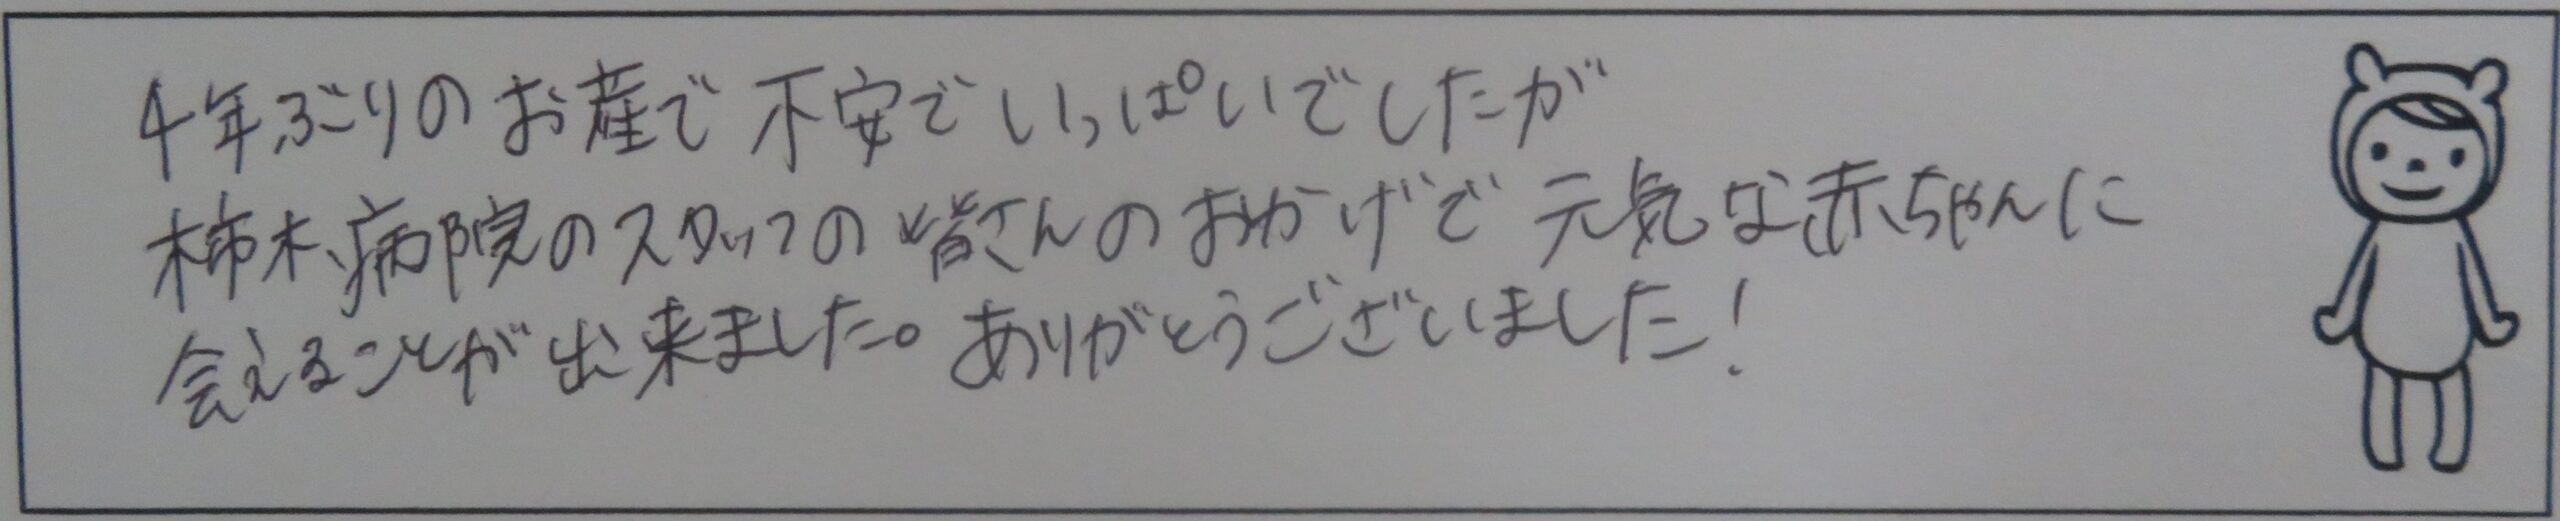 4年ぶりのお産で不安でいっぱいでしたが
柿木病院のスタッフの皆さんのおかげで元気な赤ちゃんに
会えることが出来ました。ありがとうございました!